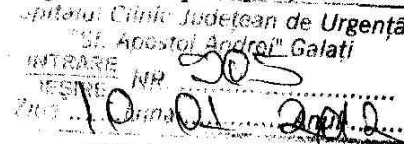 Spitalul Clinic Județean de Urgență
"Sf. Apostol Andrei" Galați
INTRARE
IEȘIRE NR. 505
Ziua 10 Luna 01